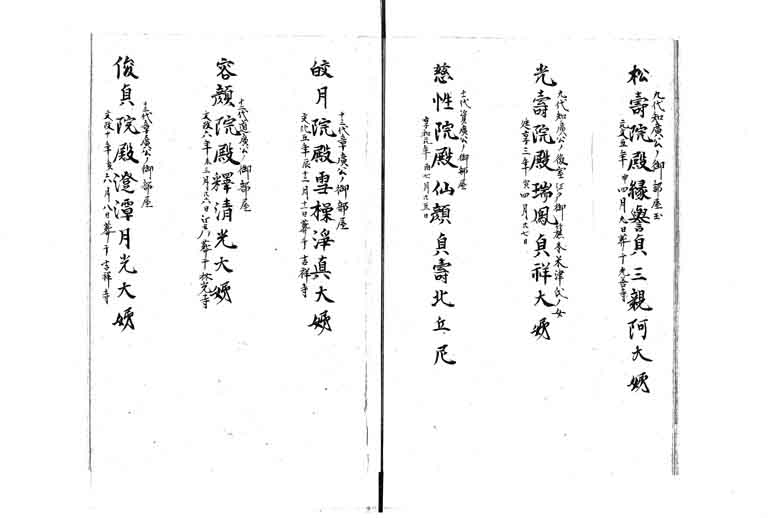 松壽院殿縁譽貞三親阿大姉
九代知廣公ノ御部屋
元文五年申四月九日葬于光善寺
光壽院殿瑞鳳貞祥大姉
九代知廣公ノ後室江戸御簱本米津氏ノ女
延享三年寅四月廿七日
慈性院殿仙顔貞壽比丘尼
十一代資廣公ノ御部屋
享和元年酉七月廿五日
皎月院殿雪操淨真大姉
十三代章廣公ノ御部屋
文化五年辰十二月十一日葬于吉祥寺
容顔院殿釋清光大姉
十二代道廣公ノ御部屋
文政六年未三月廿六日江戸ノ葬于林光寺
俊貞院殿澄潭月光大姉
十三代章廣公ノ御部屋
文政十年亥六月八日葬于吉祥寺